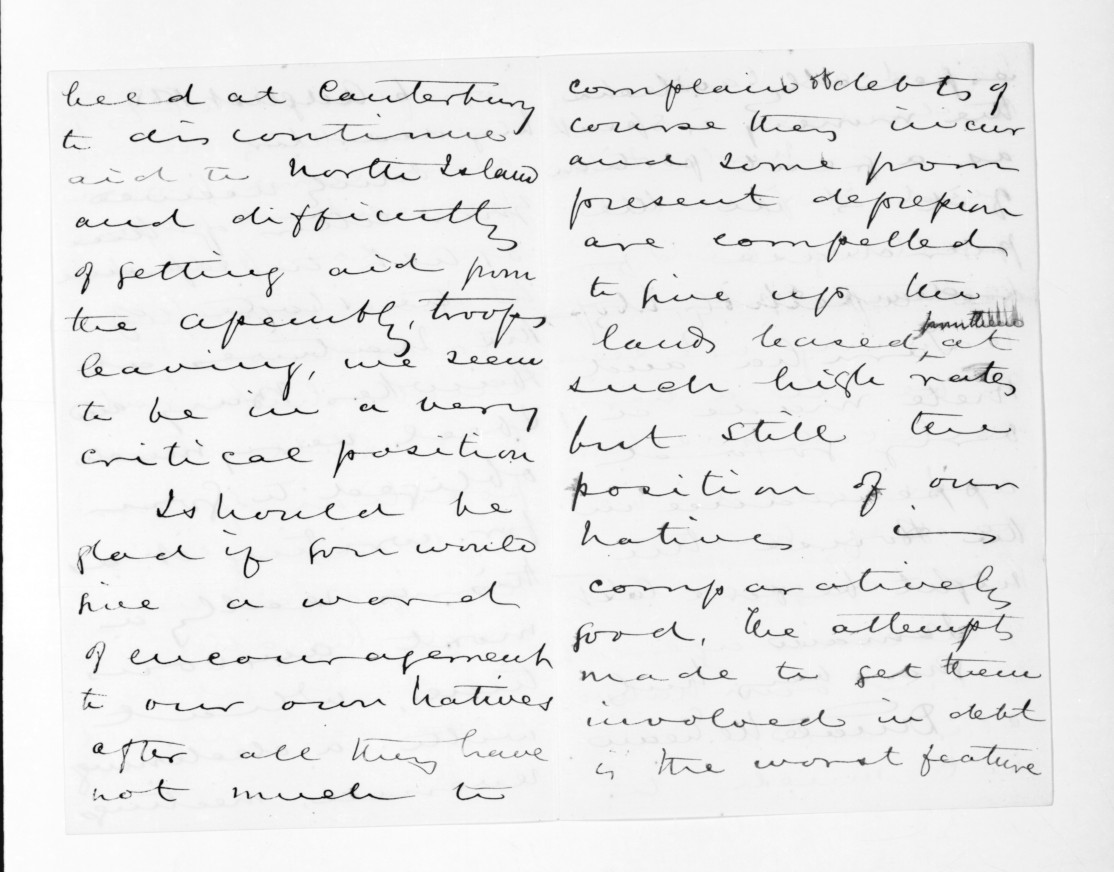 heed at Canterbury
to discontinue
aid to North Island
and difficulty
of getting aid from
the assembly, troops
leaving, we seem
to be in a very
critical position
I should be
glad if you would
give a word
of encouragement
to our own Natives
after all they have
not much to
complain of debts of
course they incur
and some from
present depression
are compelled
to give up the
lands leased from them at
such high rates
but still the
position of our
Natives is
comparatively
good. The attempts
made to get them
involved in debt
is the worst feature